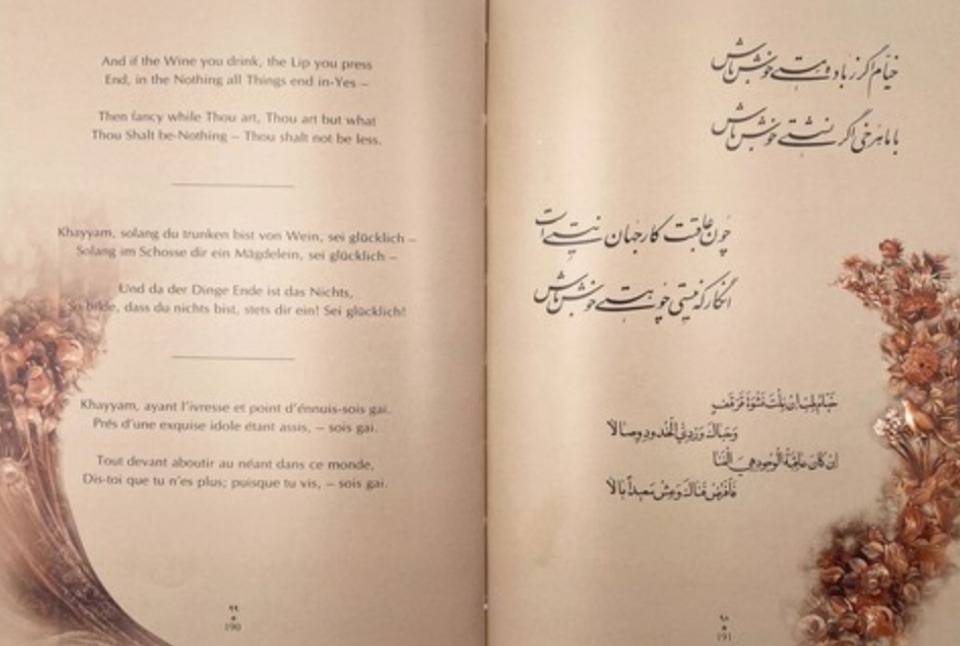 And if the Wine you drink, the Lip you press
End, in the Nothing all Things end in-Yes –
Then fancy while Thou art, Thou art but what
Thou Shalt be-Nothing – Thou shalt not be less.
Khayyam, solang du trunken bist von Wein, sei glücklich –
Solang im Schosse dir ein Mägdelein, sei glücklich –
Und da der Dinge Ende ist das Nichts,
So bilde, dass du nichts bist, stets dir ein! Sei glücklich!
Khayyam, ayant l'ivresse et point d'énnuis-sois gai.
Prés d'une exquise idole étant assis, – sois gai.
Tout devant aboutir au néant dans ce monde,
Dis-toi que tu n'es plus; puisque tu vis, – sois gai.
۹۹
190
خیام اگر ز باده مستی خوش باش
با ماهرخی اگر نشستی خوش باش
چون عاقبت کار جهان نیستی است
انگار که نیستی چو هستی خوش باش
خيام طب إن نلت نشوة قرقف
وحباك وردي الخدود وصالا
إن كان عاقبة الوجود هي الفنا
فافرض فناك وعش سعيداً بالا
۹۸
191